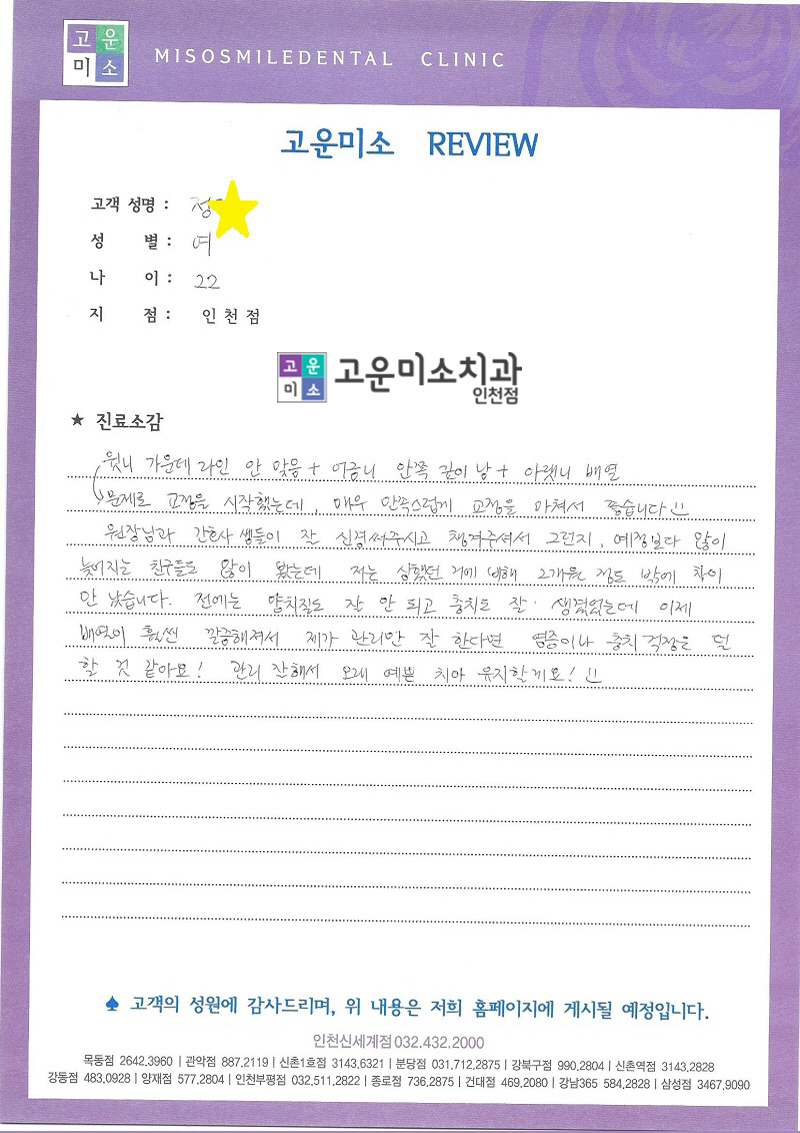 고운
미소
MISOSMILEDENTAL CLINIC
고운미소 REVIEW
고객 성명 : 정
성 별 : 여
나 이 : 22
지 점 : 인천점
고운
미소
고운미소치과
인천점
★ 진료소감
윗니 가운데 라인 안 맞음 + 어금니 안쪽 깊이 남 + 아랫니 배열
문제로 교정을 시작했는데, 매우 만족스럽게 교정을 마쳐서 좋습니다
원장님과 간호사 쌤들이 잘 신경써주시고 챙겨주셔서 그런지, 예정보다 많이
늦어지는 친구들도 많이 봤는데 저는 상했던 거에 비해 2개월 정도 밖에 차이
안 났습니다. 전에는 양치질도 잘 안 되고 충치도 잘 생겼었는데 이제
배열이 훨씬 깔끔해져서 제가 관리만 잘 한다면 염증이나 충치 걱정은 덜
할 것 같아요! 관리 잘해서 오래 예쁜 치아 유지할게요!
♠ 고객의 성원에 감사드리며, 위 내용은 저희 홈페이지에 게시될 예정입니다.
인천신세계점 032.432.2000
목동점 2642.3960 | 관악점 887.2119 | 신촌1호점 3143.6321 | 분당점 031.712.2875 | 강북구점 990.2804 | 신촌역점 3143.2828
강동점 483.0928 | 양재점 577.2804 | 인천부평점 032.511.2822 | 종로점 736.2875 | 건대점 469.2080 | 강남365 584.2828 | 삼성점 3467.9090